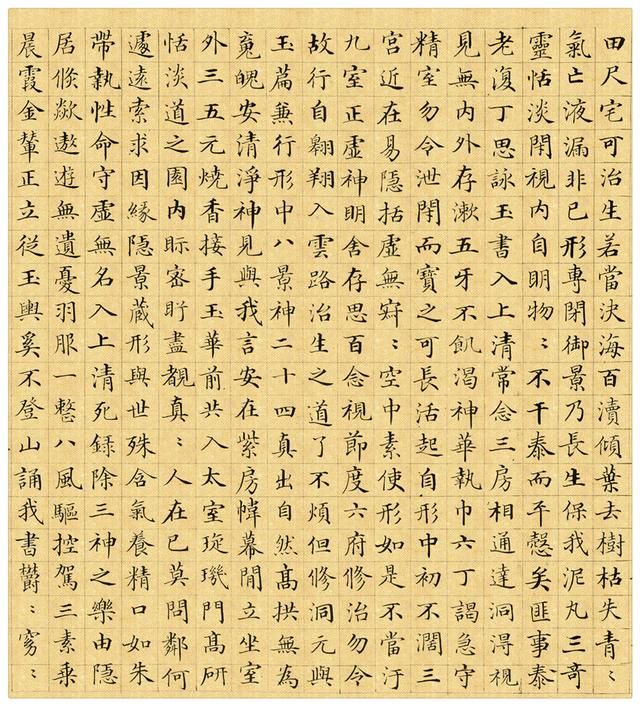 田尺宅可治生若當決海百瀆傾葉去樹枯失青〻
氣亡液漏非已形專閉御景乃長生保我泥丸三奇
靈恬淡閑視內自明物〻不干泰而平慤矣匪事泰
老復丁思詠玉書入上清常念三房相通達洞得視
見無內外存漱五牙不飢渴神華執巾六丁謁急守
精室勿令泄閉而寶之可長活起自形中初不濶三
宮近在易隱括虛無寂〻空中素使形如是不當汙
九室正虛神明舍存思百念視節度六府修治勿令
故行自翱翔入雲路治生之道了不煩但修洞元與
玉篇兼行形中八景神二十四真出自然高拱無為
䰟魄安清淨神見與我言安在紫房幃幕間立坐室
外三五元燒香接手玉華前共入太室琁璣門高研
恬淡道之園內眎密盻盡覩真〻人在已莫問鄰何
遽遠索求因緣隱景藏形與世殊含氣養精口如朱
帶執性命守虛無名入上清死録除三神之樂由隱
居倏歘遨遊無遺憂羽服一整八風驅控駕三素乗
晨霞金輦正立從玉輿奚不登山誦我書欝〻窈〻